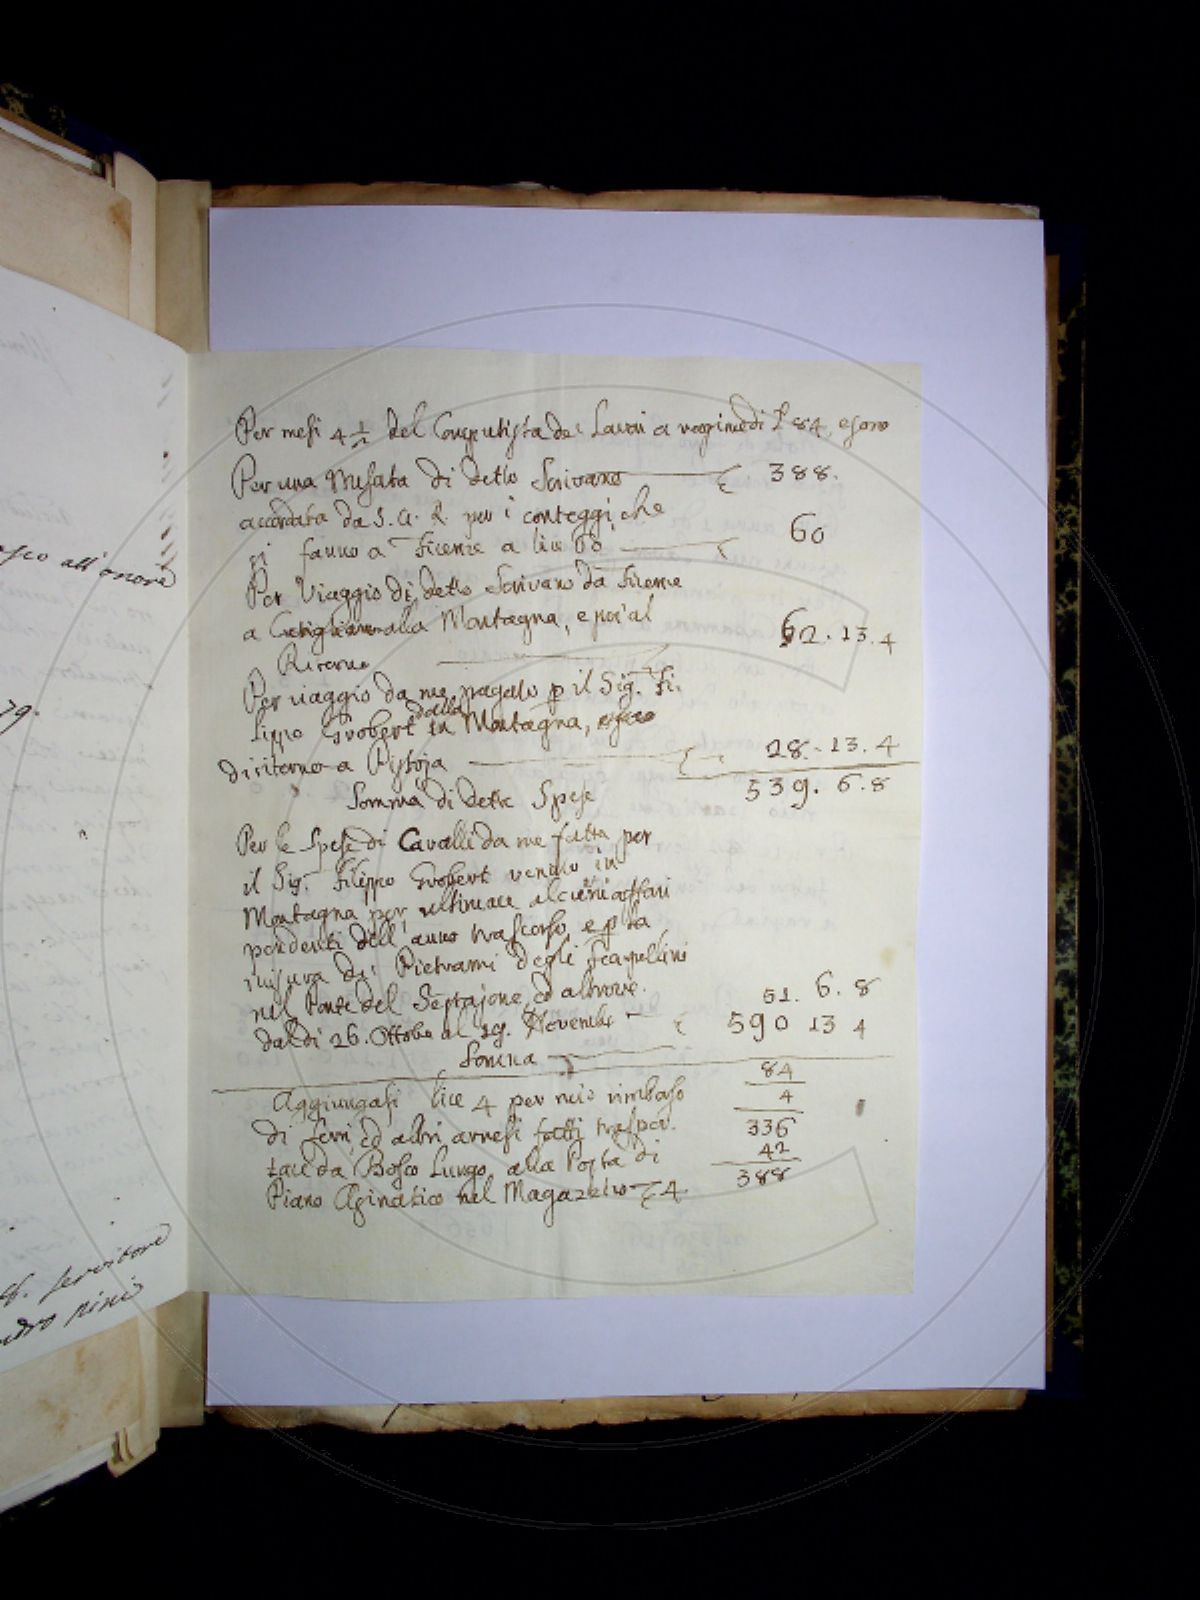 Per mesi 4 1/2 del Computista de' Lavori a ragione di £ 84, e sono
388.
Per una Mesata di detto Scrivano
accordata da S. A. R. per i conteggi, che
si fanno a Firenze a lire 60
60
Per Viaggio di detto Scrivano da Firenze
a Cutigliano alla Montagna, e poi al
Ritorno
62. 13. 4
Per viaggio da me pagato p il Sig. Fi.
lippo Grobert dalla in Montagna,
di ritorno a Pistoja
28. 13. 4
Somma di dette Spese
539. 6. 8
Per le Spese di Cavalli da me fatta per
il Sig. Filippo Grobert venuto in
Montagna per ultimare alcuni affari
pendenti dell'anno trascorso, e p la
misura da' Pietrami degli Scapellini
nel Ponte del Sestajone, ed altrove.
dal dì 26. Ottobre al 19. Novembr
51. 6. 8
Somma
590 13 4
84
4
336
42
388
Aggiungasi lire 4 per mio rimborso
di ferri, ed altri arnesi fatti traspor.
tare da Bosco Lungo alla Posta di
Piano Asinatico nel Magazzino £ 4.
osco all'onore
79.
servitore